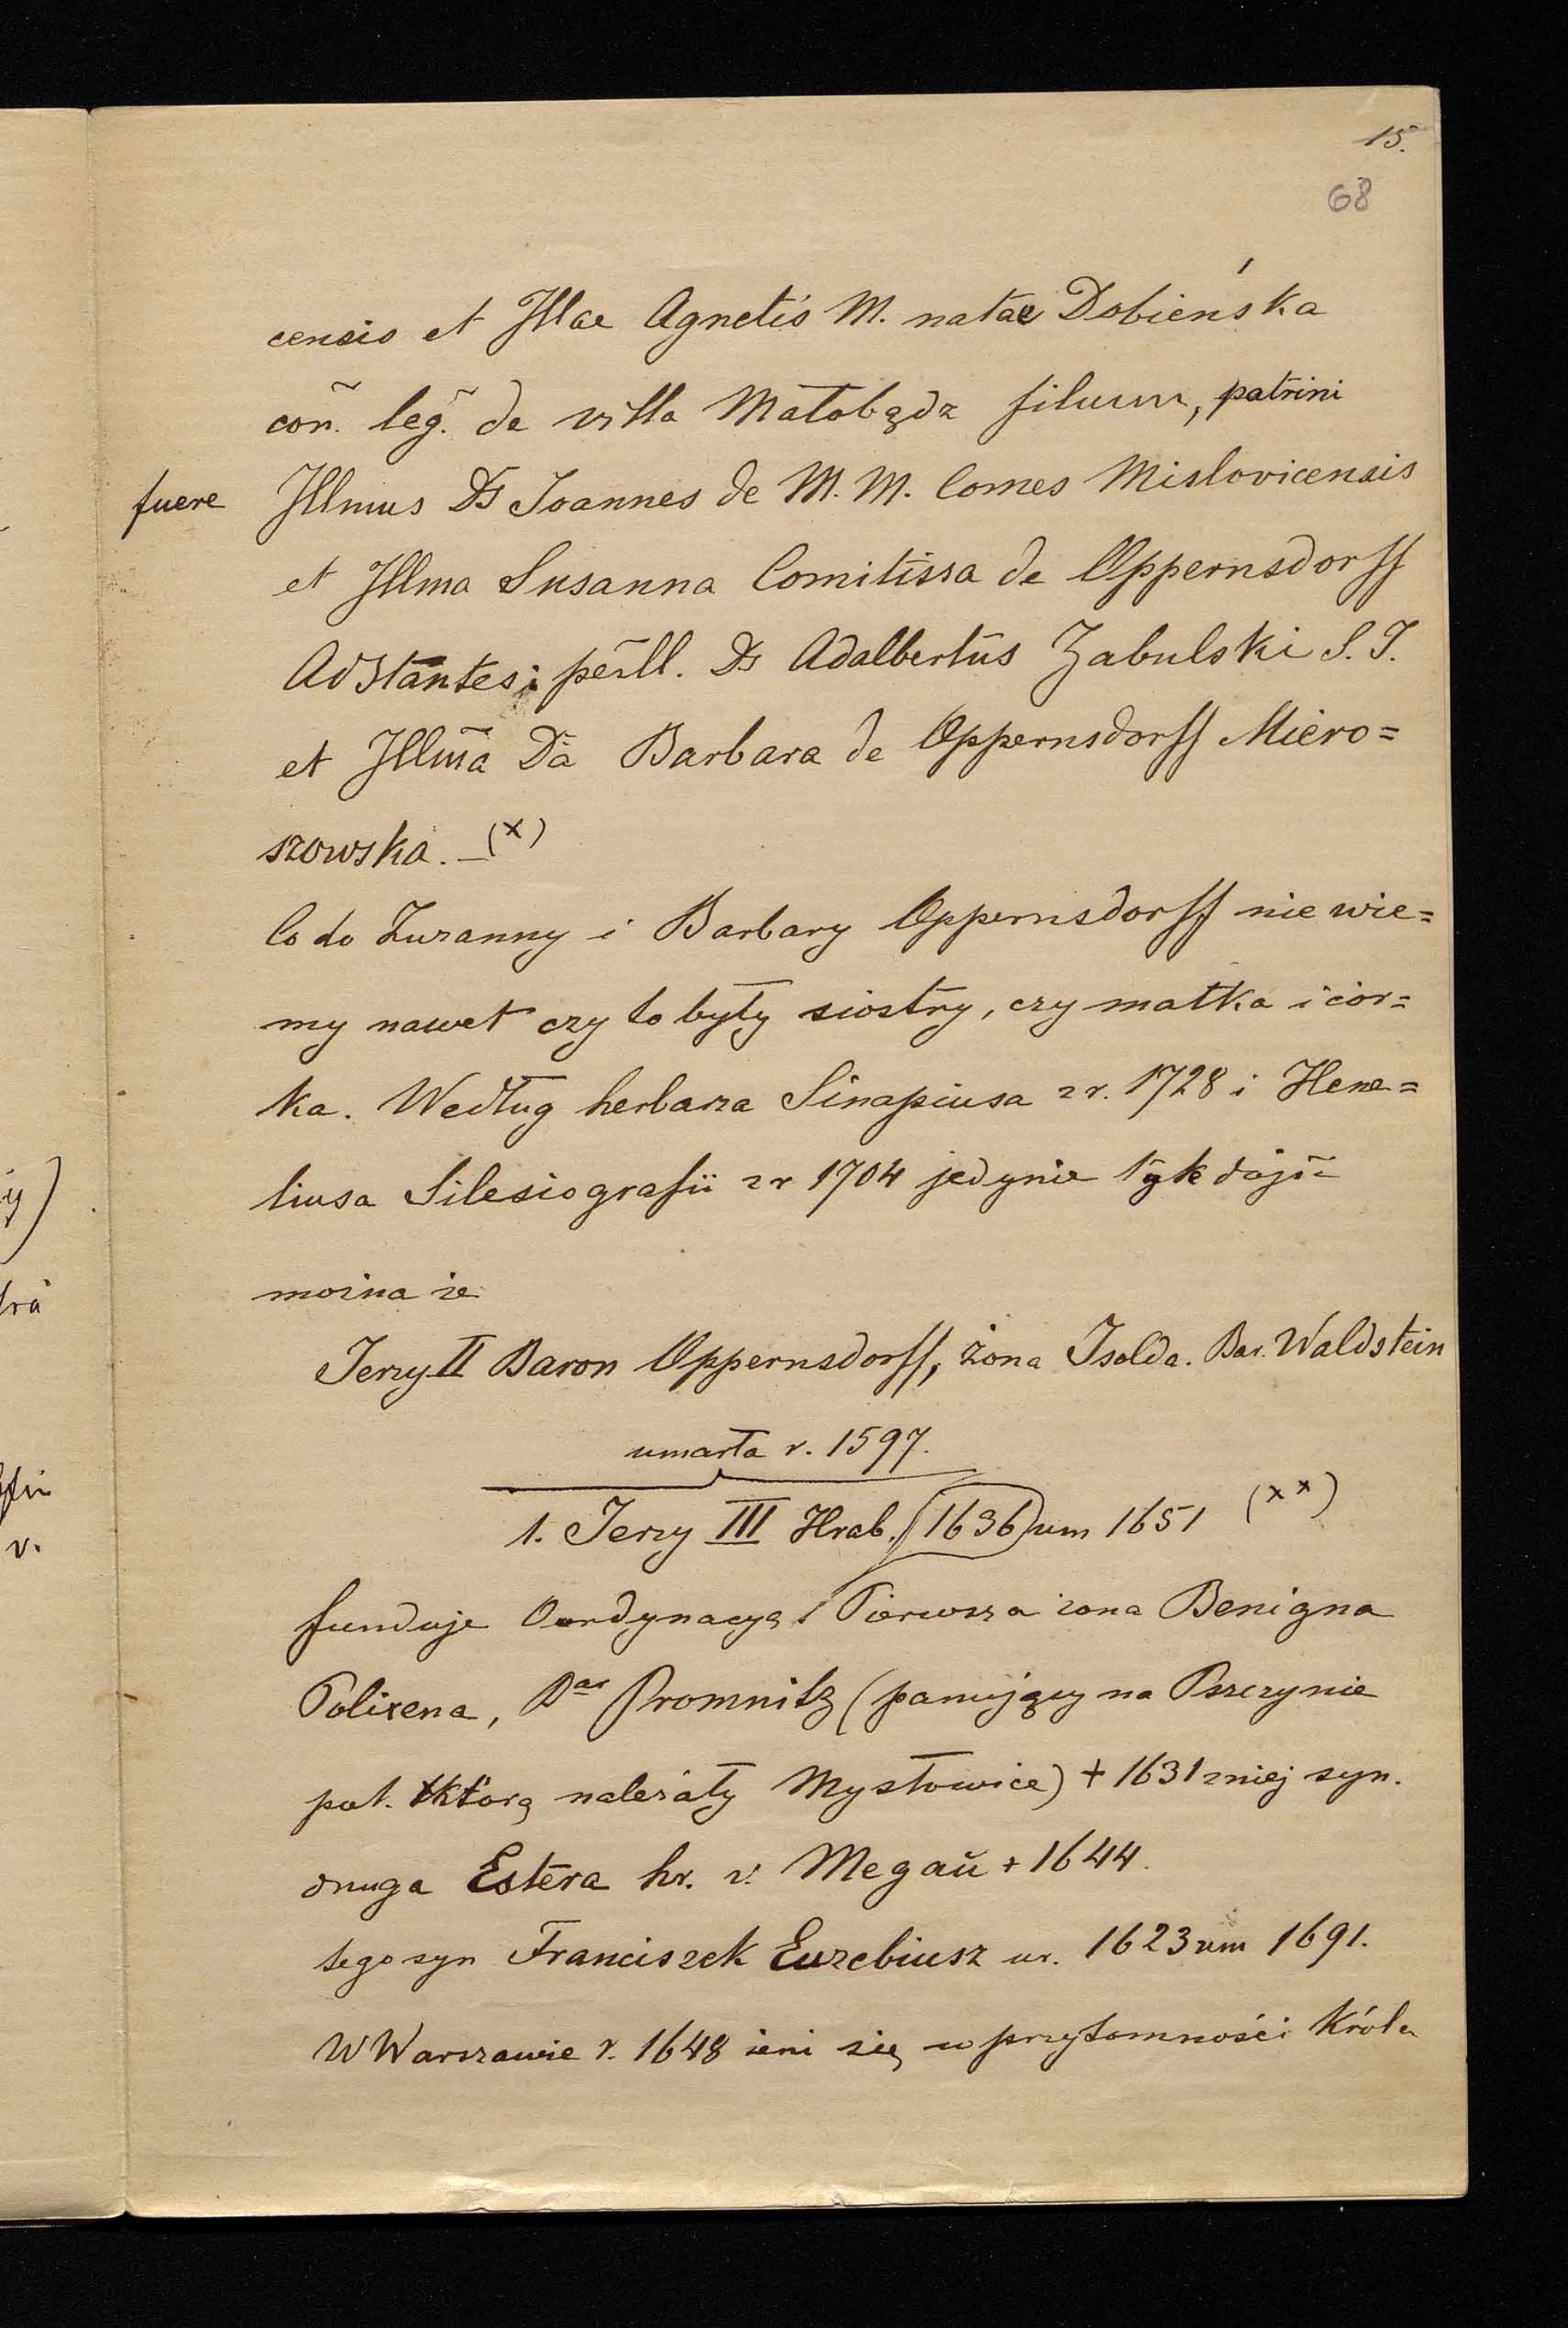 15.
68
censis et Illae Agnetis M. natae Dobieńska
coñ. leg̃. de villa Małobądz filium, patrini
fuere Illmus Ds Joannes de M. M. Comes Mislovicensis
et Illma Susanna Comitissa de Oppernsdorff
Adstantes; perill. Ds Adalbertus Zabulski S. J.
et Illm̃a Dã Barbara de Oppernsdorff Miero=
szowska. _(x)
Co do Zuzanny i Barbary Oppernsdorff nie wie=
my nawet czy to były siostry, czy matka i cór=
ka. Według herbarza Sinapiusa z r. 1728 i Hene=
liusa Silesiografii z r 1704 jedynie tyle dojść
można że
Jerzy II Baron Oppernsdorff, żona Isolda. Bar. Waldstein
umarła r. 1597.
1. Jerzy III Hrab. (1636) um 1651 (xx)
funduje Oordynacyą Pierwsza żona Benigna
Polixena, Bar Promnitz (panujący na Pszczynie
pod. którą należały Mysłowice) + 1631 z niej syn.
druga Estera hr. v. Megaŭ + 1644.
tego syn Franciszek Euzebiusz ur. 1623 um 1691.
W Warszawie r. 1648 żeni się w przytomności Króla